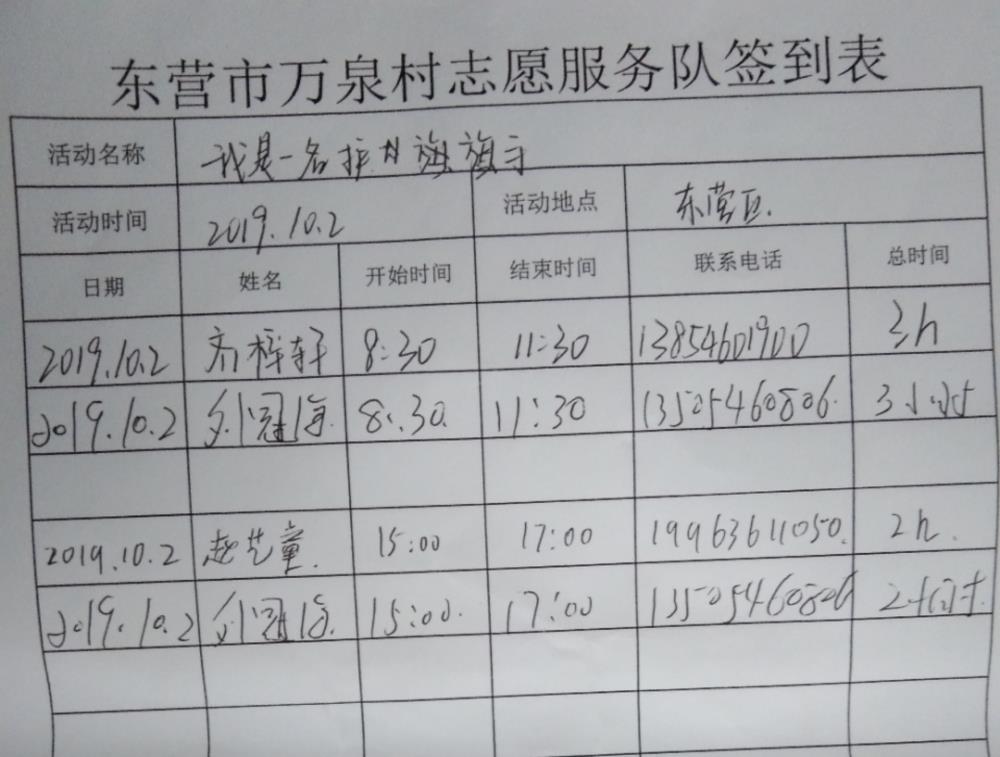 东营市万泉村志愿服务队签到表
活动名称 我是一名护旗手
活动时间 2019.10.2 活动地点 东营区.
日期 姓名 开始时间 结束时间 联系电话 总时间
2019.10.2 齐梓轩 8:30 11:30 13854601900 3h
2019.10.2 冠 8:30. 11:30 13505460806. 3小时
2019.10.2 赵艺童. 15:00 17:00 19963611050. 2h.
2019.10.2 冠 15:00. 17:00 13505460806 2小时